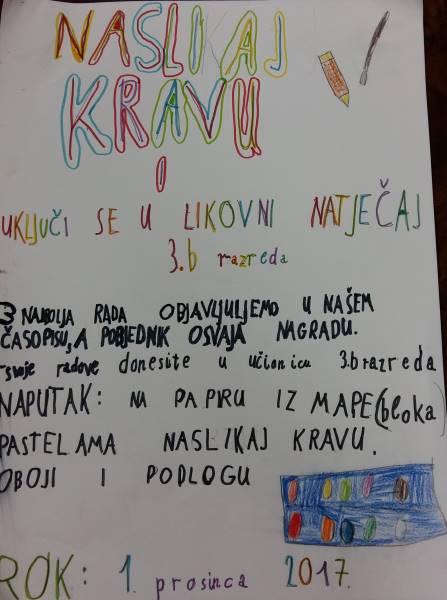 NASLIKAJ
KRAVU
I
UKLJUČI SE U LIKOVNI NATJEČAJ
3.b razreda
3 NAJBOLJA RADA OBJAVLJUJEMO U NAŠEM
ČASOPISU, A POBJEDNIK OSVAJA NAGRADU.
-svoje radove donesite u učionicu 3.b razreda
NAPUTAK: NA PAPIRU IZ MAPE (bloka)
PASTELAMA NASLIKAJ KRAVU.
OBOJI I PODLOGU
ROK: 1. prosinca 2017.